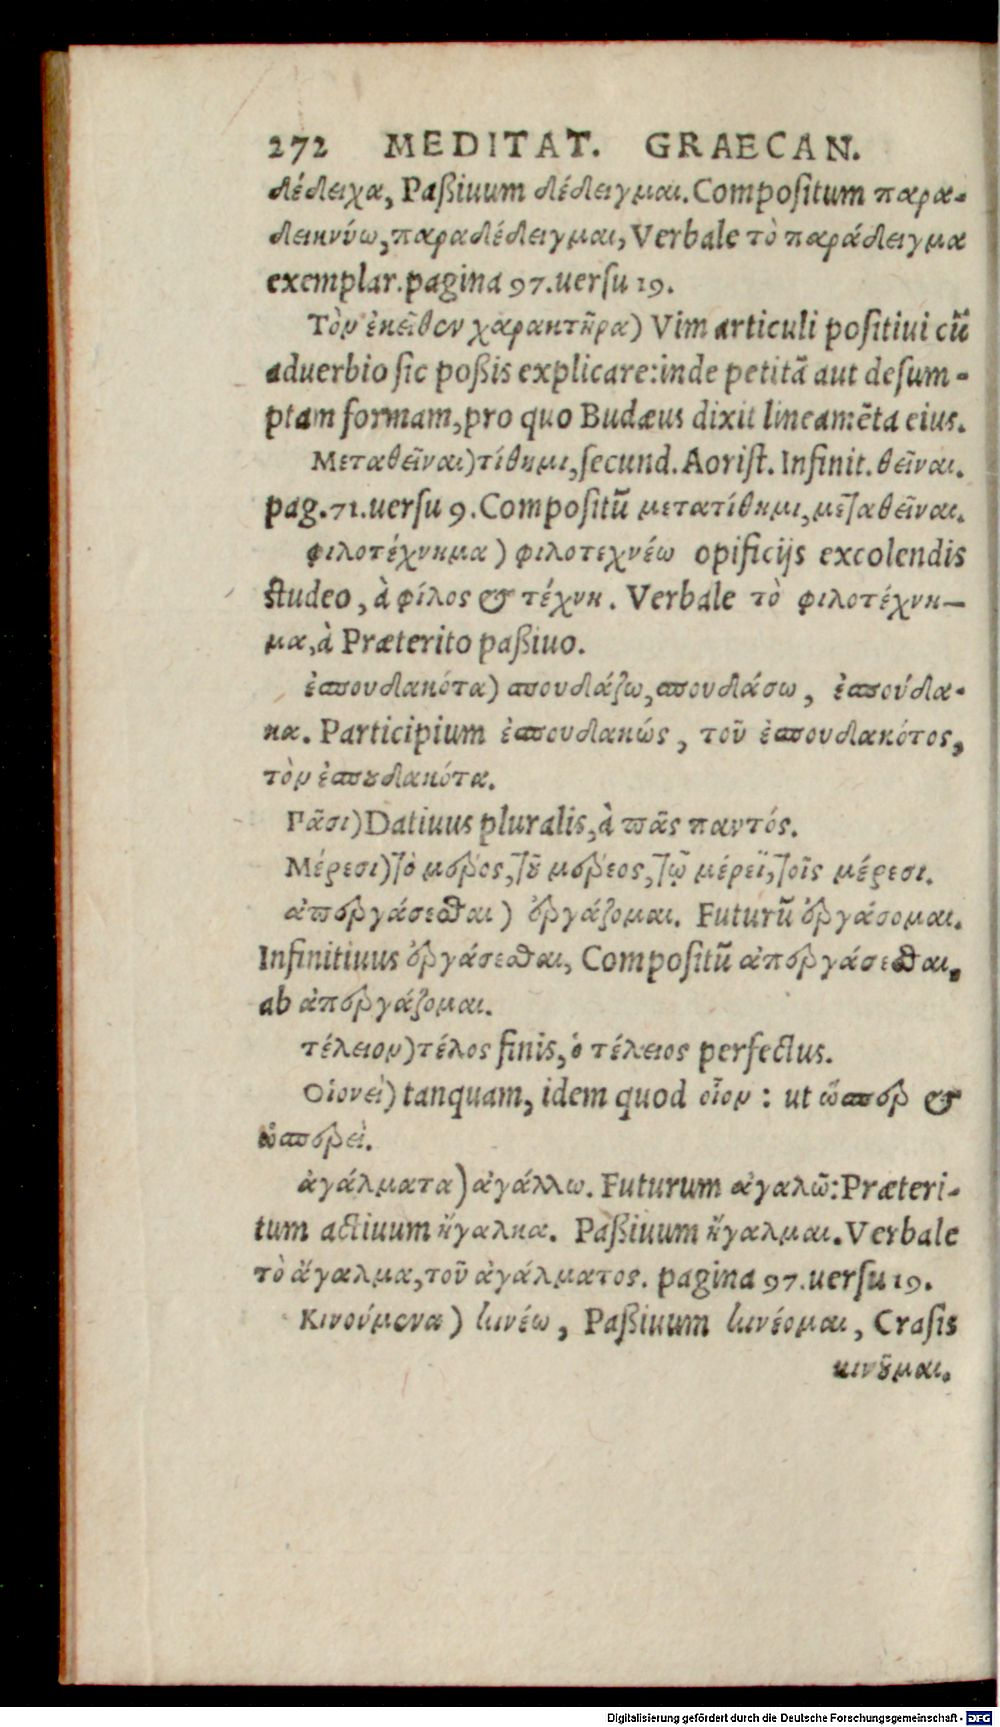 272 MEDITAT. GRAECAN.
δέδειχα, Paßiuum δέδειγμαι. Compositum παρα-
δεικνύω, παραδέδειγμαι, Verbale τὸ παράδειγμα
exemplar. pagina 97. uersu 19.
Τὸν ἐκεῖθεν χαρακτῆρα) Vim articuli positiui cũ
aduerbio sic poßis explicare: inde petitã aut desum-
ptam formam, pro quo Budæus dixit lineamẽta eius.
Μεταθεῖναι) τίθημι, secund. Aorist. Infinit. θεῖναι.
pag. 71. uersu 9. Compositũ μετατίθημι, μεταθεῖναι.
φιλοτέχνημα) φιλοτεχνέω opificijs excolendis
studeo, à φίλος & τέχνη. Verbale τὸ φιλοτέχνη-
μα, à Præterito paßiuo.
ἐσπουδακότα) σπουδάζω, σπουδάσω, ἐσπούδα-
κα. Participium ἐσπουδακώς, τοῦ ἐσπουδακότος,
τὸν ἐσπȣδακότα.
Γᾶσι) Datiuus pluralis, à πᾶς παντός.
Μέρεσι) τὸ μέρος, τȣ͂ μέρεος, τῷ μέρεϊ, τοῖς μέρεσι.
ἀπεργάσεσθαι) ἐργάζομαι. Futurũ ἐργάσομαι.
Infinitiuus ἐργάσεσθαι, Compositũ ἀπεργάσεσθαι,
ab ἀπεργάζομαι.
τέλειον) τέλος finis, ὁ τέλειος perfectus.
Οἱονεὶ) tanquam, idem quod οἷον: ut ὥσπερ &
ὡσπερεὶ.
ἀγάλματα) ἀγάλλω. Futurum ἀγαλῶ: Præteri-
tum actiuum ἤγαλκα. Paßiuum ἤγαλμαι. Verbale
τὸ ἄγαλμα, τοῦ ἀγάλματος. pagina 97. uersu 19.
Κινούμενα) κινέω, Paßiuum κινέομαι, Crasis
κινȣ͂μαι.
Digitalisierung gefördert durch die Deutsche Forschungsgemeinschaft - DFG